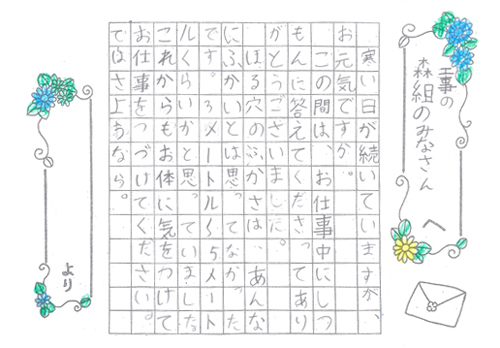 工事の
森組のみなさん
へ
寒い日が続いていますが、
お元気ですか。
この間は、お仕事中にしつ
もんに答えてくださってあり
がとうございました。
ほる穴のふかさは、あんな
にふかいとは思ってなかった
です。3メートル〜5メート
ルくらいかと思っていました。
これからもお体に気をつけて
お仕事をつづけてください。
ではさようなら。
より